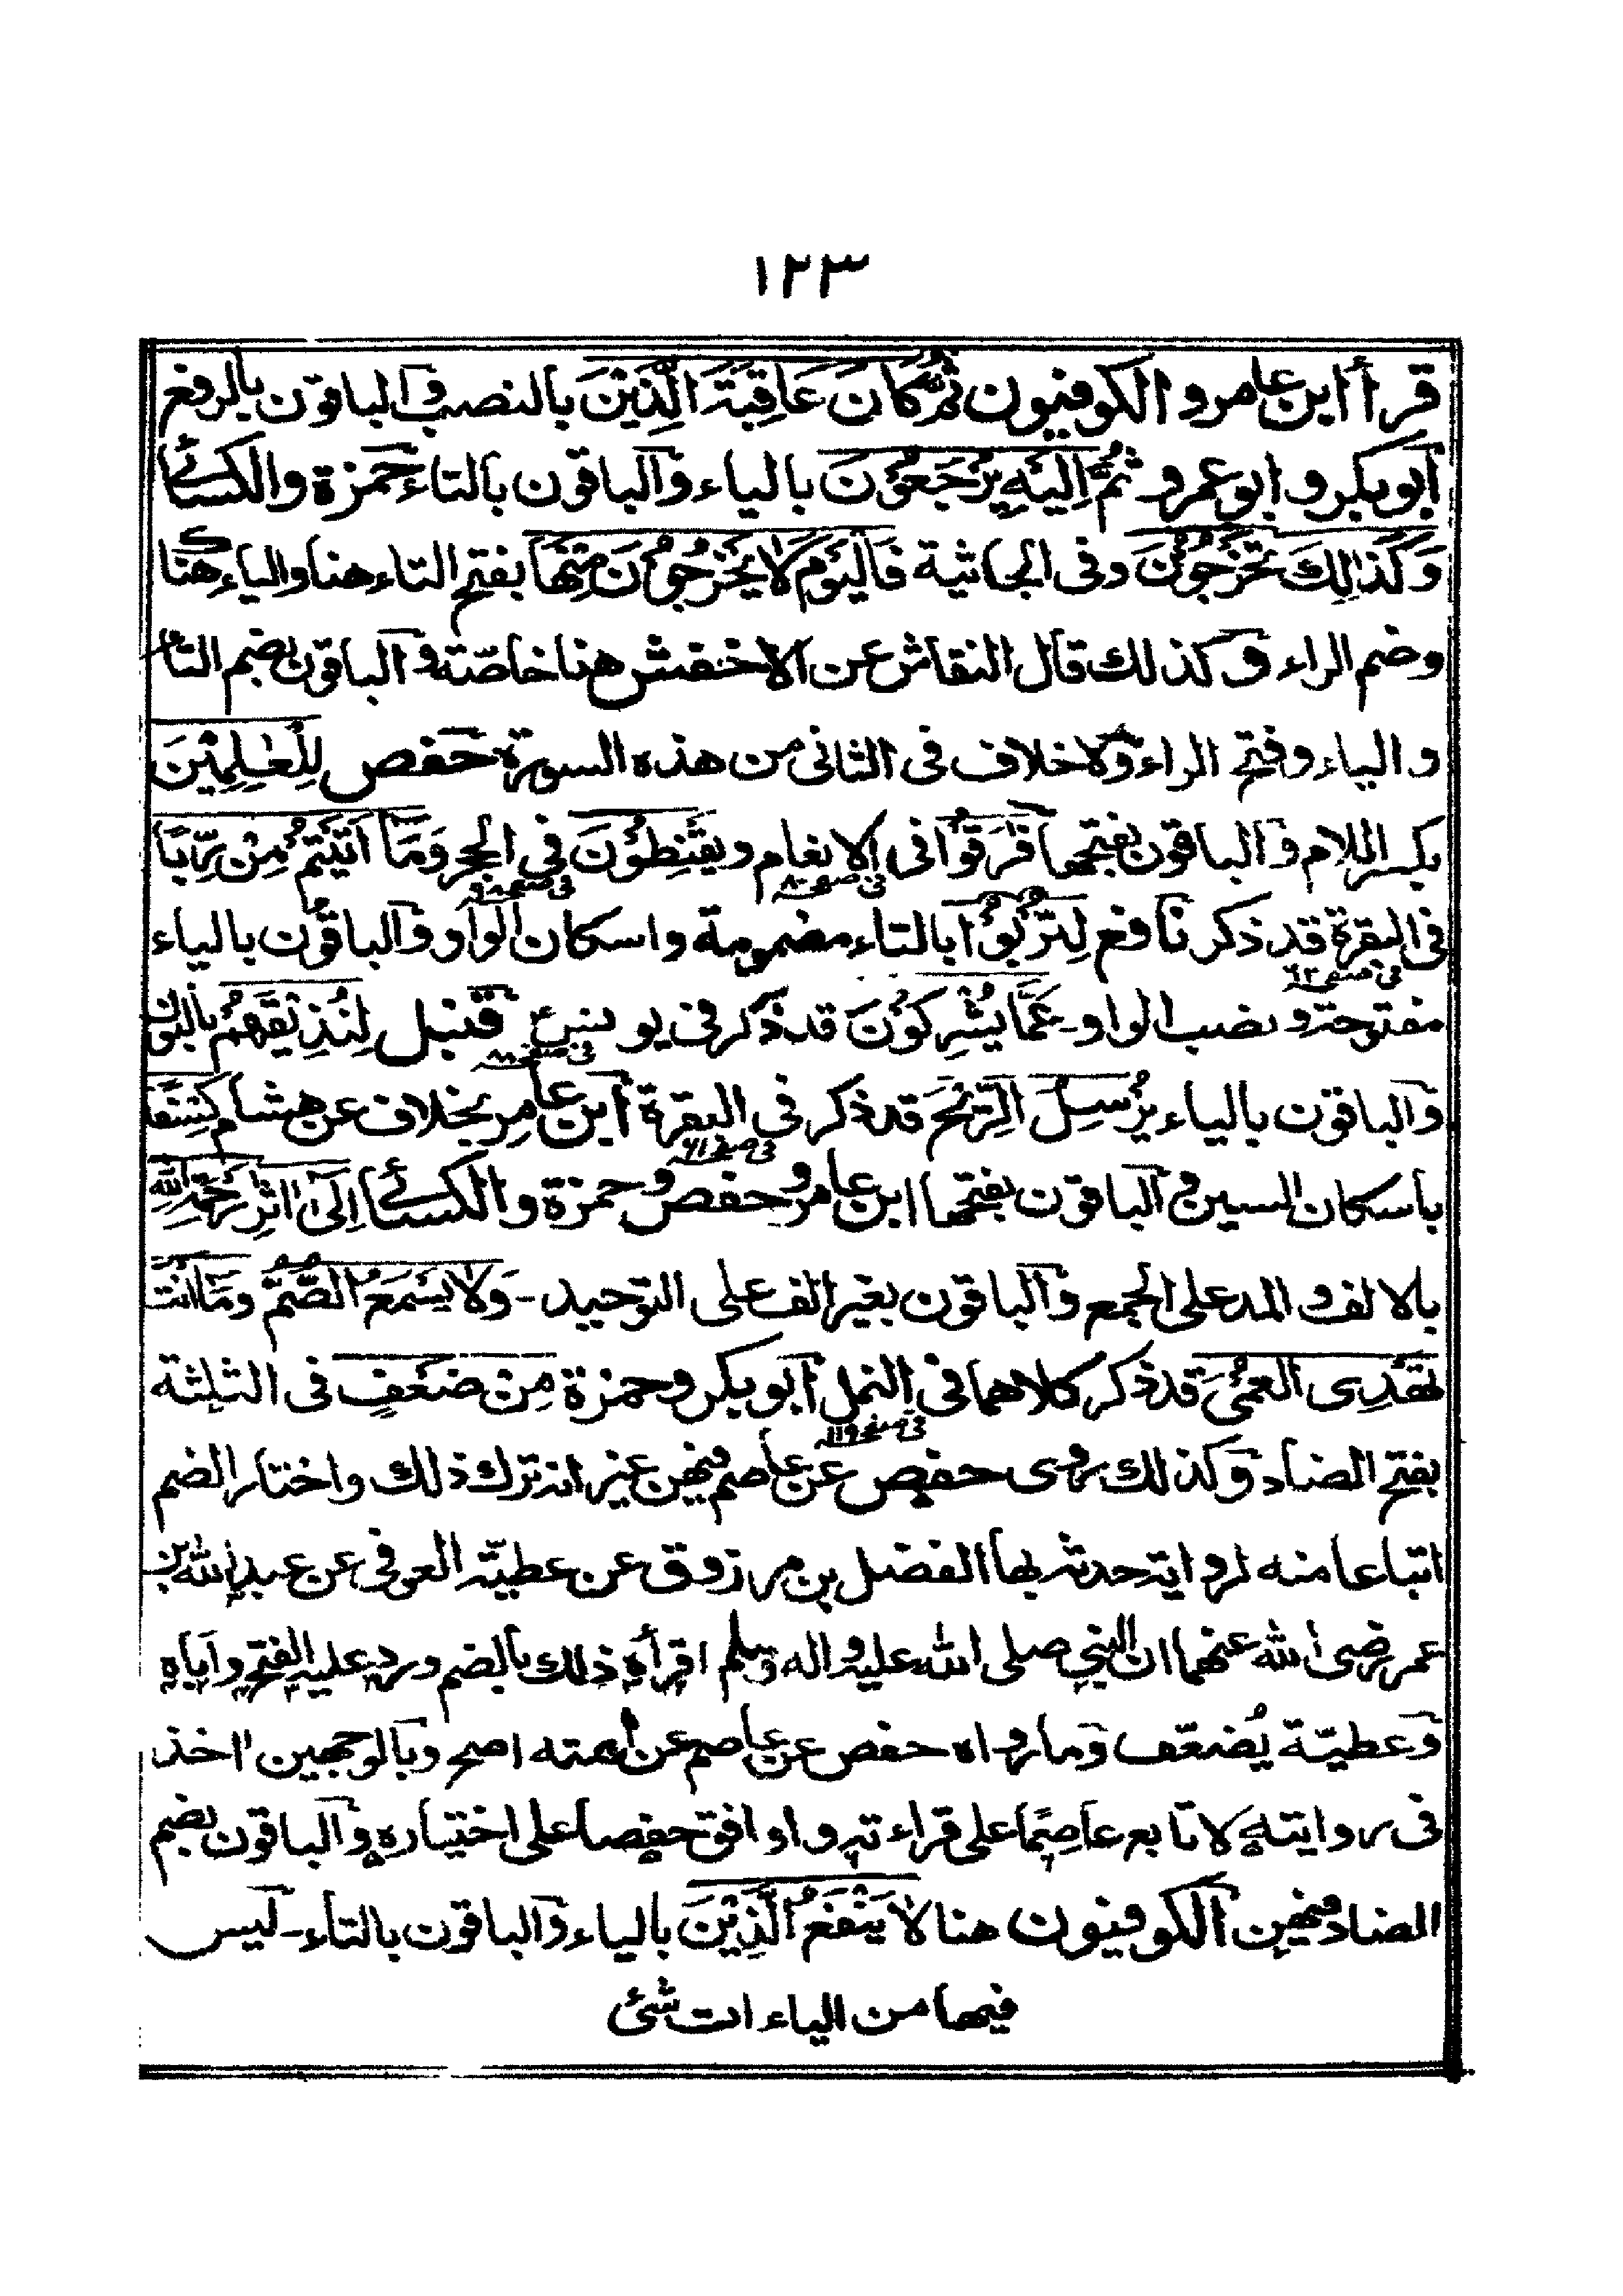 ١٢٣
قرأ ابن عامر والكوفيون ثُمَّ كَانَ عَاقِبَةَ الَّذِيْنَ بالنصب والباقون بالرفع
ابوبكر وابو عمرو ثُمَّ اِلَيْهِ يُرْجَعُوْنَ بالياء والباقون بالتاء حمزة والكسائى
وَكَذٰلِكَ تَخْرُجُوْنَ وفى الجاثية فَالْيَوْمَ لَا يَخْرُجُوْنَ مِنْهَا بفتح التاء هنا والياء هناك
وضم الراء وكذلك قال النقاش عن الاخفش هنا خاصّته والباقون بضم التاء
والياء وفتح الراء ولاخلاف فى الثانى من هذه السورة حفص لِلْعٰلِمِيْنَ
بكسر اللام والباقون بفتحها فَرَّقُوْا فى الانعام ويَقْنِطُوْنَ فى الحجر وَمَا اٰتَيْتُمْ مِنْ رِّبًا
فى صفحه ٨٠ فى صفحه ٩٨
فى البقرة قد ذكر نافع لِتُرْبُوْا بالتاء مضمومة واسكان الواو والباقون بالياء
فى صفحه ٦٢
مفتوحة ونصب الواو - عَمَّا يُشْرِكُوْنَ قد ذكر فى يونس ع قنبل لِنُذِيْقَهُمْ بالنون
فى صفحه ٨٨
والباقون بالياء يُرْسِلَ الرِّيْحَ قد ذكر فى البقرة ابن عامر بخلاف عن هشام كِسْفًا
فى صفحه ٦١
باسكان السين والباقون بفتحها ابن عامر وحفص وحمزة والكسائى اِلٰى اٰثٰرِ رَحْمَتِ اللّٰهِ
بالالف والمد على الجمع والباقون بغير الف على التوحيد - وَلَا يَسْمَعُ الصُّمُّ وَمَا اَنْتَ
تَهْدِى الْعُمْىَ قد ذكر كلاهما فى النمل ابوبكر وحمزة مِنْ ضَعْفٍ فى الثلثة
فى صفحه ١١٩
بفتح الضاد وكذلك روى حفص عن عاصم فيهن غير انه ترك ذلك واختار الضم
اتباعا منه لرواية حدثه بها الفضل بن مرزوق عن عطيّة العوفى عن عبد الله بن
عمر رضى الله عنهما ان النبى صلى الله عليه واله وسلم اقرأه ذلك بالضم ورد عليه الفتح واباه
وعطيّة يُضعّف وما رواه حفص عن عاصم عن ائمته اصح وبالوجهين اخذ
فى روايته لاتابع عاصِمًا على قراءته واوافق حفصا على اختياره والباقون بضم
الضاد فيهن الكوفيون هنا لَا يَنْفَعُ الَّذِيْنَ بالياء والباقون بالتاء - ليس
فيها من الياءات شئ